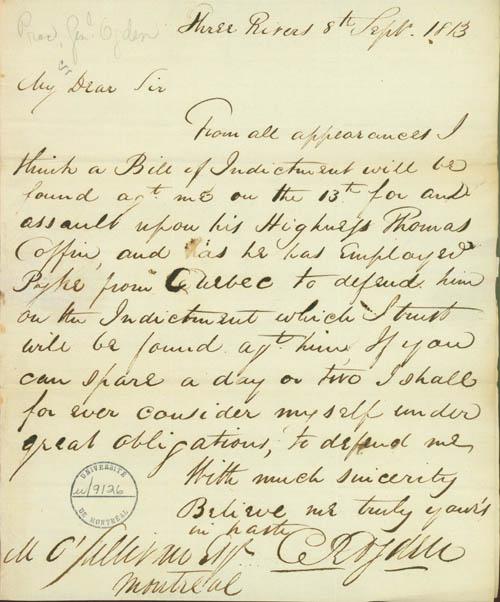 Proc. Genl. Ogden
Three Rivers 8th Septr. 1813
My Dear Sir
From all appearances I
think a Bill of Indictment will be
found agt. me on the 13th for and
assault upon his Highness Thomas
Coffin, and as he has Employed
Pyke from Quebec to defend him
on the Indictment which I trust
will be found agt. him, If you
can spare a day or two I shall
for ever consider myself under
great obligations, to defend me,
With much sincerity
Believe me truly your's
in haste
C R Ogden
M O'Sullivan Esqr.
Montreal
UNIVERSITÉ
u/9126
DE MONTRÉAL